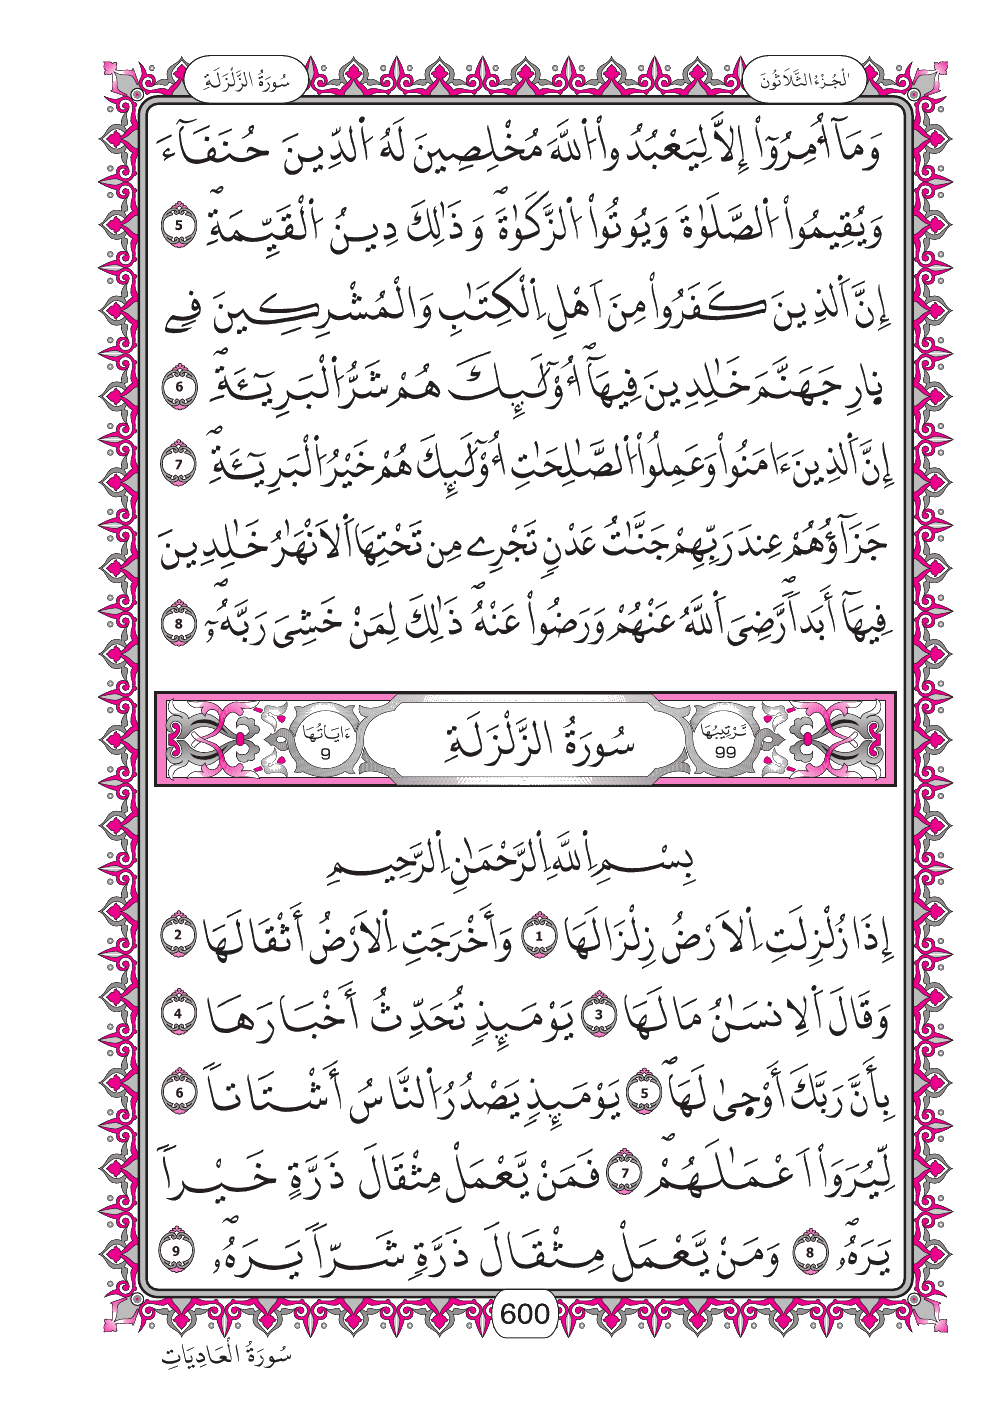 الْجُزْءُ الثَّلَاثُونَ
سُورَةُ الزَّلْزَلَةِ
وَمَآ أُمِرُوٓاْ إِلَّا لِيَعْبُدُواْ اُللَّهَ مُخْلِصِينَ لَهُ اُلدِّينَ حُنَفَآءَ
وَيُقِيمُواْ اُلصَّلَوٰةَ وَيُوتُواْ اُلزَّكَوٰةَۖ وَذَٰلِكَ دِينُ اُلْقَيِّمَةِۖ 5
إِنَّ اَلذِينَ كَفَرُواْ مِنَ اَهْلِ اِلْكِتَٰبِ وَالْمُشْرِكِينَ فِے
نِارِ جَهَنَّمَ خَٰلِدِينَ فِيهَآۖ أُوْلَٰٓئِكَ هُمْ شَرُّ اُلْبَرِيٓـَٔةِۖ 6
إِنَّ اَلذِينَ ءَامَنُواْ وَعَمِلُواْ اُلصَّٰلِحَٰتِ أُوْلَٰٓئِكَ هُمْ خَيْرُ اُلْبَرِيٓـَٔةِۖ 7
جَزَآؤُهُمْ عِندَ رَبِّهِمْ جَنَّٰتُ عَدْنٖ تَجْرِے مِن تَحْتِهَا اَلَانْهَٰرُ خَٰلِدِينَ
فِيهَآ أَبَداٗۖ رَّضِيَ اَللَّهُ عَنْهُمْ وَرَضُواْ عَنْهُۖ ذَٰلِكَ لِمَنْ خَشِيَ رَبَّهُۥۖ 8
تَرْتِيبُهَا 99
سُورَةُ الزَّلْزَلَةِ
ءَايَاتُهَا 9
بِسْمِ اِللَّهِ اِلرَّحْمَٰنِ اِلرَّحِيمِ
إِذَا زُلْزِلَتِ اِلَارْضُ زِلْزَالَهَا 1 وَأَخْرَجَتِ اِلَارْضُ أَثْقَالَهَا 2
وَقَالَ اَلِانسَٰنُ مَا لَهَا 3 يَوْمَئِذٖ تُحَدِّثُ أَخْبَارَهَا 4
بِأَنَّ رَبَّكَ أَوْحٜىٰ لَهَاۖ 5 يَوْمَئِذٖ يَصْدُرُ اُلنَّاسُ أَشْتَاتاٗ 6
لِّيُرَوَاْ اَعْمَٰلَهُمْۖ 7 فَمَنْ يَّعْمَلْ مِثْقَالَ ذَرَّةٍ خَيْراٗ
يَرَهُۥۖ 8 وَمَنْ يَّعْمَلْ مِثْقَالَ ذَرَّةٖ شَرّاٗ يَرَهُۥۖ 9
600
سُورَةُ الْعَادِيَاتِ